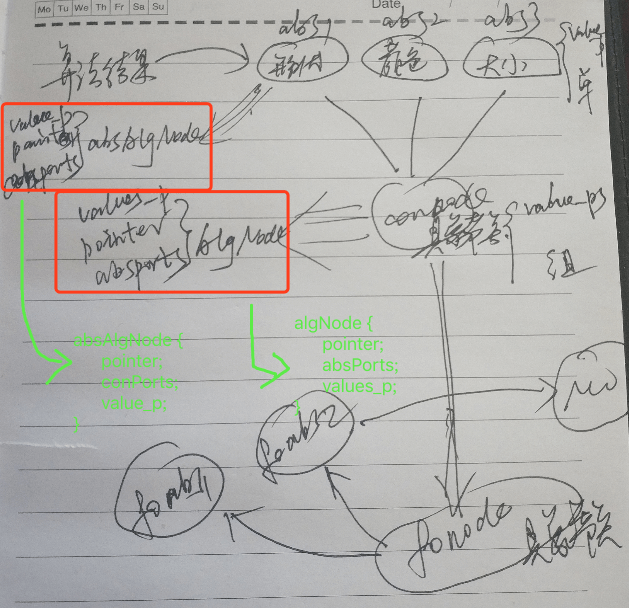 Mo Tu We Th Fr Sa Su
Date
abs1 abs2 abs3
算法结果
形状
颜色
大小
value_p
单
value_p
pointer
absports
absAlgNode
values_p
pointer
absports
AlgNode
conNode
具象节点
value_ps
组
absAlgNode {
pointer;
conPorts;
value_p;
}
algNode {
pointer;
absPorts;
values_p;
}
foabs2
mv
foabs1
foNode